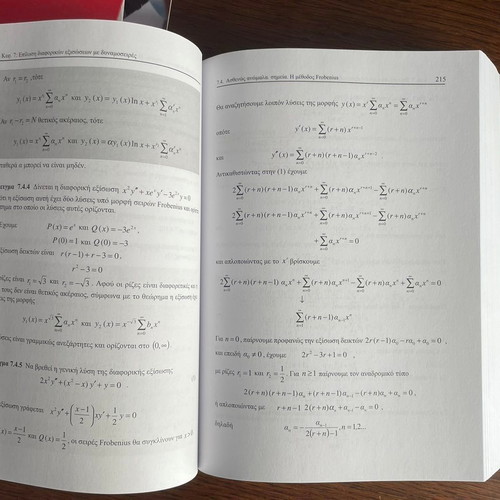 Κεφ. 7: Επίλυση διαφορικών εξισώσεων με δυναμοσειρές
Αν r₁ = r₂ ,τότε
y₁(x) = x^{r₁} Σ_{n=0}^{∞} aₙxⁿ και y₂(x) = y₁(x) ln x + x^{r₁} Σ_{n=1}^{∞}
Αν r₁ − r₂ = N θετικός ακέραιος, τότε
και y₂(x) = αy₁(x) ln x +
σταθερά α μπορεί να είναι μηδέν.
7.4.4 Δίνεται η διαφορική εξίσωση x²y″ + xeˣy′ − 3e²ˣy = 0
ότι η εξίσωση αυτή έχει δύο λύσεις υπό μορφή σειρών Frobenius και
στο οποίο οι λύσεις αυτές ορίζονται.
Έχουμε P(x) = eˣ και Q(x) = −3e²ˣ,
P(0) = 1 και Q(0) = −3
εξίσωση δεικτών είναι r(r − 1) + r − 3 = 0,
r² − 3 = 0
ρίζες είναι r₁ = √3 και r₂ = −√3. Αφού οι ρίζες είναι διαφορετικές και
τους δεν είναι θετικός ακέραιος, σύμφωνα με το θεώρημα η εξίσωση
της μορφής
y₁(x) = x^{√3} Σ_{n=0}^{∞} aₙxⁿ και y₂(x) = x^{−√3} Σ_{n=0}^{∞} bₙxⁿ
είναι γραμμικώς ανεξάρτητες και ορίζονται στο (0, ∞).
7.4.5 Να βρεθεί η γενική λύση της διαφορικής εξίσωσης
2x²y″ + (x² − x)y′ + y = 0
εξίσωση γράφεται x²y″ + ((x−1)/2)xy′ + (1/2)y = 0
(x) = (x−1)/2 και Q(x) = 1/2, οι σειρές Frobenius θα συγκλίνουν για x > 0
7.4. Ασθενώς ανώμαλα σημεία. Η μέθοδος Frobenius 215
Θα αναζητήσουμε λοιπόν λύσεις της μορφής y(x) = x^r Σ_{n=0}^{∞} aₙxⁿ = Σ_{n=0}^{∞} aₙx^{r+n}
οπότε y′(x) = Σ_{n=0}^{∞} (r+n)x^{r+n−1}
και y″(x) = Σ_{n=0}^{∞} (r+n)(r+n−1)aₙx^{r+n−2}
Αντικαθιστώντας στην (1) έχουμε
2Σ_{n=0}^{∞} (r+n)(r+n−1)aₙx^{r+n} + Σ_{n=0}^{∞} (r+n)aₙx^{r+n+1} − Σ_{n=0}^{∞} (r+n)aₙx^{r+n}
2Σ_{n=0}^{∞} (r+n)(r+n−1)aₙx^{r+n} + Σ_{n=0}^{∞} (r+n)aₙx^{r+n+1} − Σ_{n=0}^{∞} (r+n)aₙx^{r+n}
+ Σ_{n=0}^{∞} aₙx^{r+n} = 0
και απλοποιώντας με το x^r βρίσκουμε
2Σ_{n=0}^{∞} (r+n)(r+n−1)aₙxⁿ + Σ_{n=0}^{∞} (r+n)aₙx^{n+1} − Σ_{n=0}^{∞} (r+n)aₙxⁿ + Σ_{n=0}^{∞} aₙxⁿ = 0
↓
Σ_{n=1}^{∞} (r+n−1)aₙ₋₁xⁿ
Για n = 0, παίρνουμε προφανώς την εξίσωση δεικτών 2r(r−1)a₀ − ra₀ + a₀ = 0,
και επειδή a₀ ≠ 0, έχουμε 2r² − 3r + 1 = 0 ,
με ρίζες r₁ = 1 και r₂ = 1/2. Για n ≥ 1 παίρνουμε τον αναδρομικό τύπο
2(r+n)(r+n−1)aₙ + (r+n−1)aₙ₋₁ − (r+n)aₙ + aₙ = 0 ,
ή απλοποιώντας με r+n−1 2(r+n)aₙ + aₙ₋₁ − aₙ = 0 ,
δηλαδή aₙ = − aₙ₋₁/(2(r+n)−1), n = 1, 2...